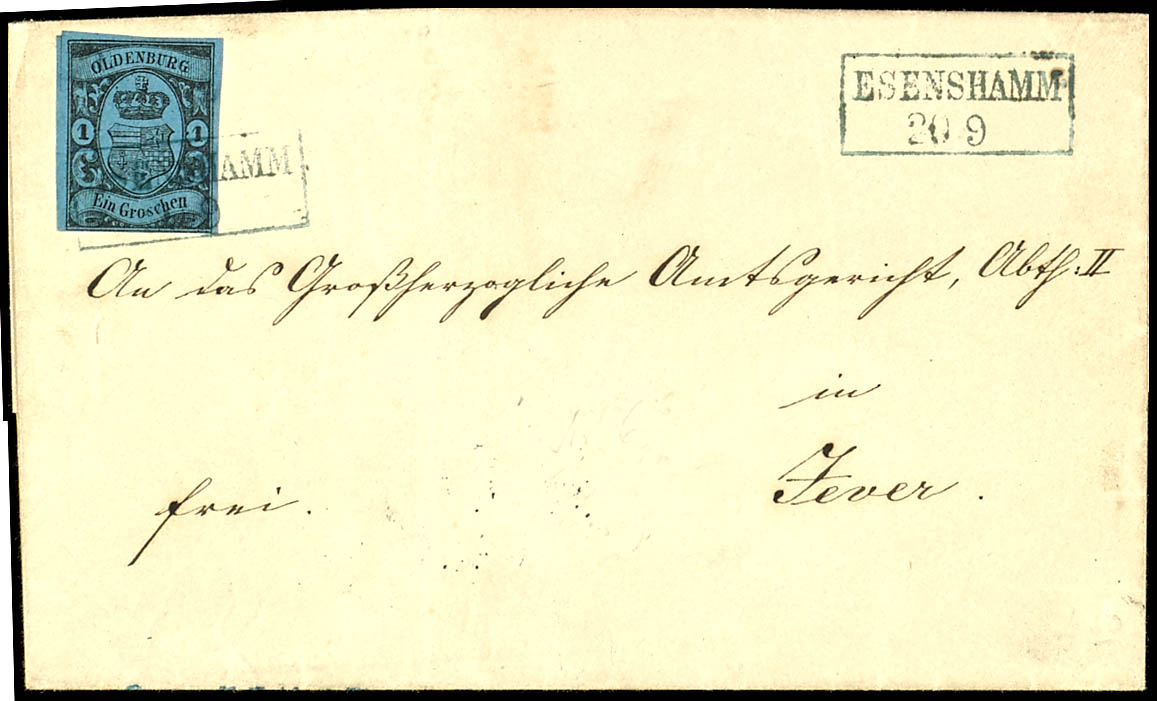 OLDENBURG
1 1
Ein Groschen
HAMM
ESENSHAMM
20 9
An das Großherzogliche Amtsgericht, Abth: II
in
Jever.
frei.